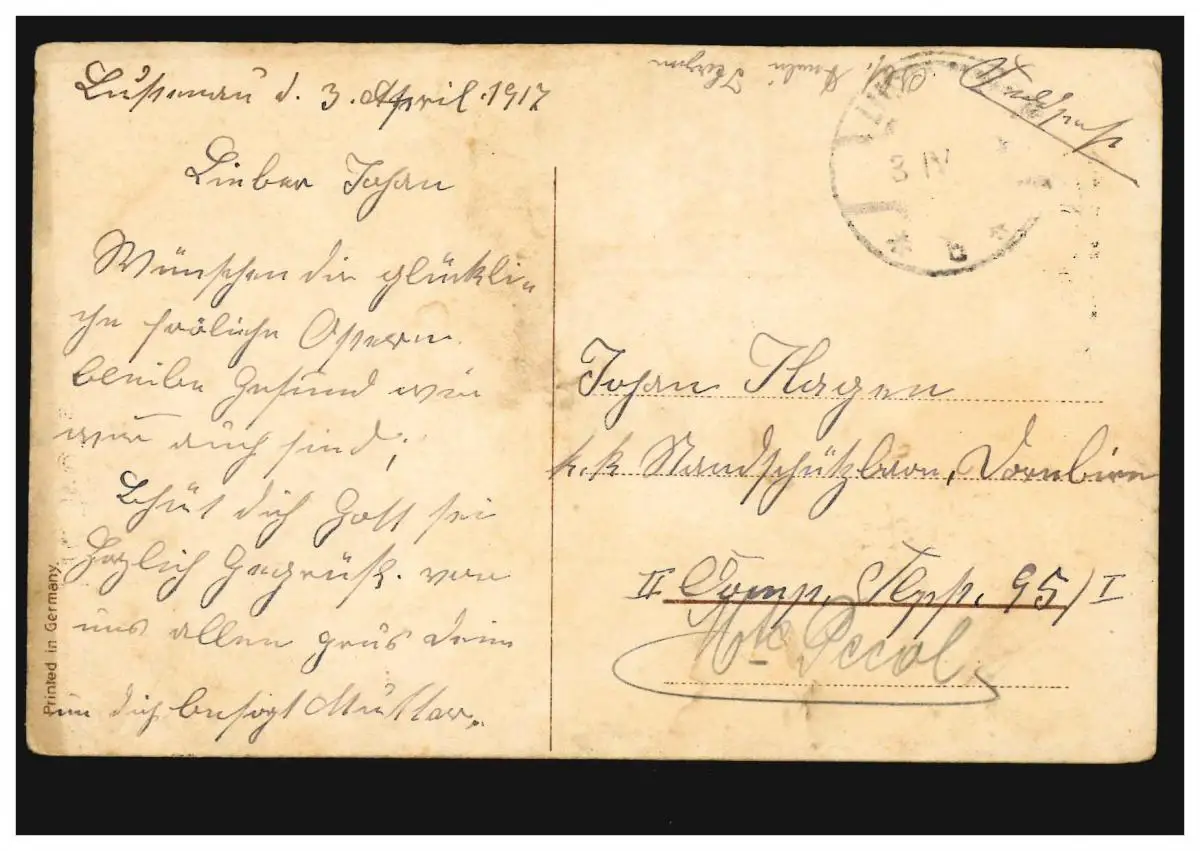 Lustenau d. 3. April. 1917
Lieber Johan
Wünschen dir glückli
che fröliche Ostern
bleibe Gesund wie
wir auch sind;
Bhüt dich Gott sei
Herzlich Gegrüßt. von
uns allen grüs deine
um dich besorgt Mutter.
Printed in Germany.
Hagen
Feldpost
3 IV
* b *
Johan Hagen
k. k Standschützbaon, Dornbirn
II Comp, Flpp. 95/I
Pecol